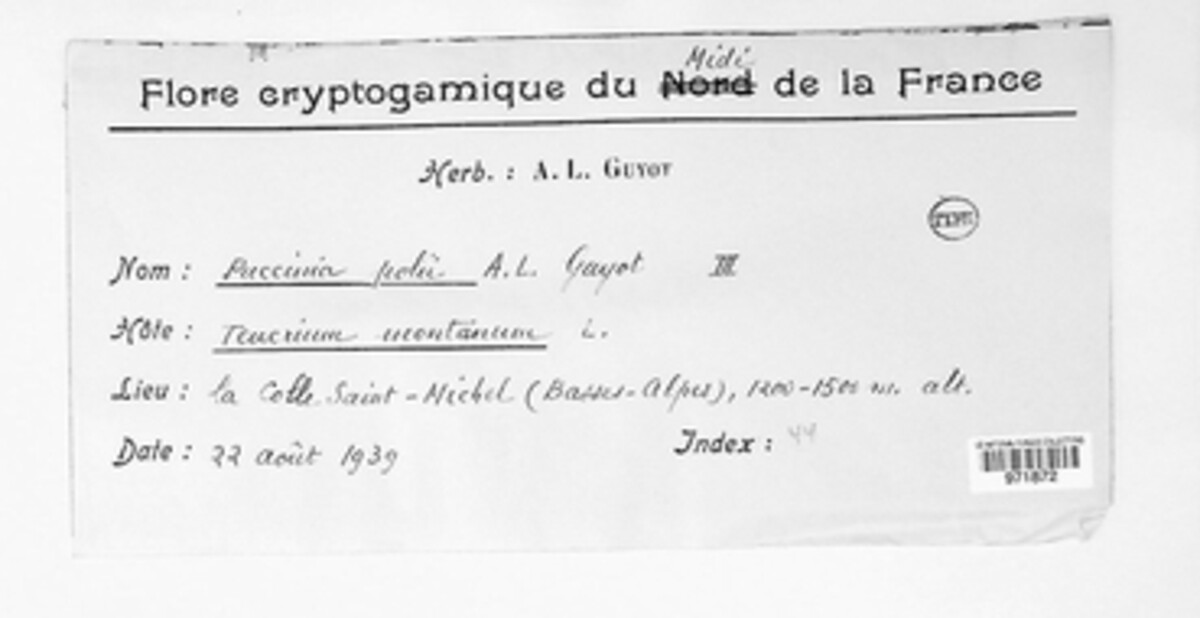 Midi
Flore cryptogamique du Nord de la France
Herb. : A. L. GUYOT
TYPE
Nom : Puccinia polii A. L. Guyot III
Hôte : Teucrium montanum L.
Lieu : la Colle Saint-Michel (Basses-Alpes), 1200-1500 m. alt.
Date : 22 août 1939 Index : 44
971872